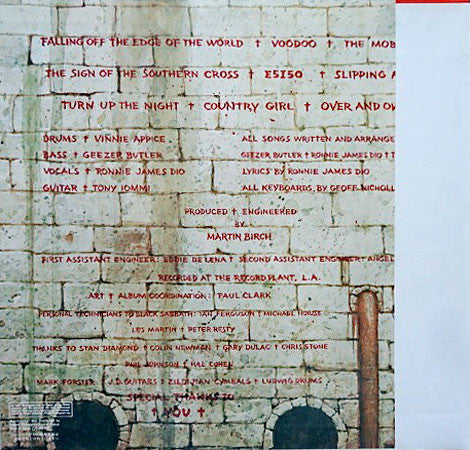 FALLING OFF THE EDGE OF THE WORLD † VOODOO † THE MOB
THE SIGN OF THE SOUTHERN CROSS † E5150 † SLIPPING A
TURN UP THE NIGHT † COUNTRY GIRL † OVER AND OV
DRUMS † VINNIE APPICE
BASS † GEEZER BUTLER
VOCALS † RONNIE JAMES DIO
GUITAR † TONY IOMMI
ALL SONGS WRITTEN AND ARRANGE
GEEZER BUTLER † RONNIE JAMES DIO † T
LYRICS BY RONNIE JAMES DIO
ALL KEYBOARDS BY GEOFF NICHOLL
PRODUCED † ENGINEERED
BY
MARTIN BIRCH
FIRST ASSISTANT ENGINEER: EDDIE DELENA † SECOND ASSISTANT ENGINEER: ANGEL
RECORDED AT THE RECORD PLANT, L.A.
ART † ALBUM COORDINATION: PAUL CLARK
PERSONAL TECHNICIANS TO BLACK SABBATH: IAN FERGUSON † MICHAEL HOWSE
LES MARTIN † PETER RESTY
THANKS TO STAN DIAMOND † COLIN NEWMAN † GARY DULAC † CHRIS STONE
PHIL JOHNSON † HAL COHEN
MARK FORSTER † J.D. GUITARS † ZILDJIAN CYMBALS † LUDWIG DRUMS
SPECIAL THANKS TO
† YOU †